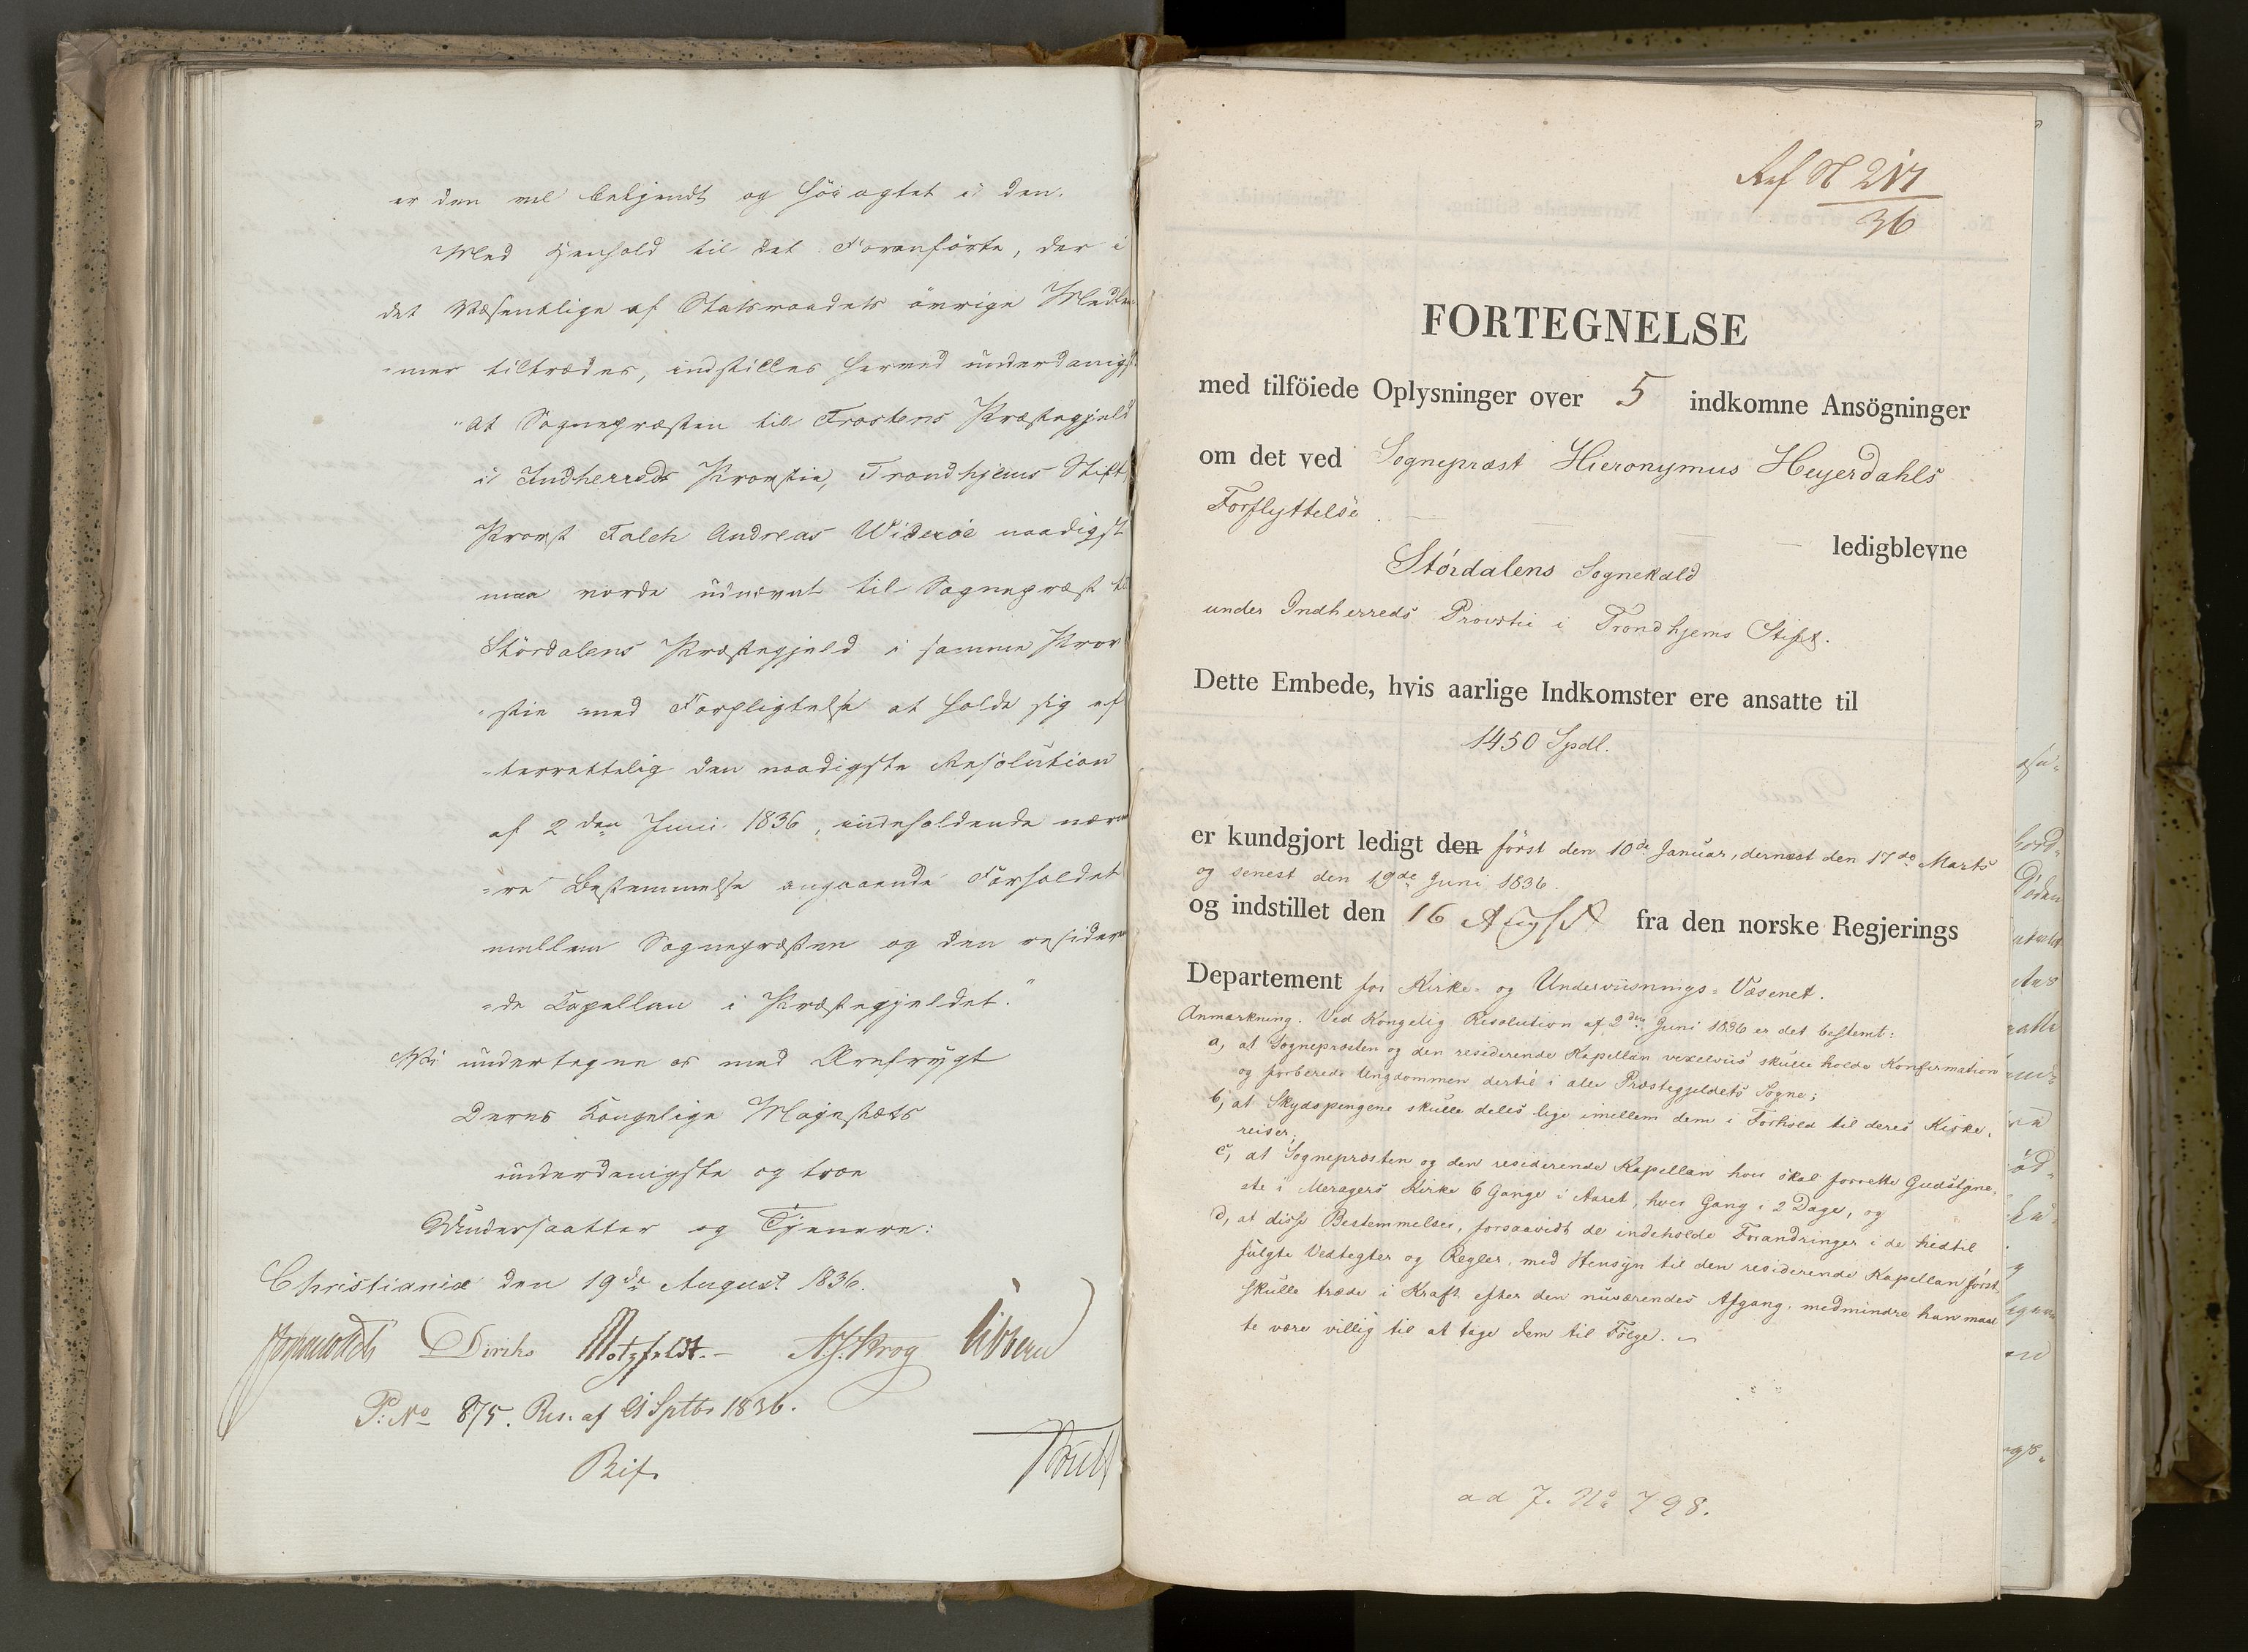 er den vel bekjendt og höiagtet i den.
Med Henhold til det Foranförte, der i
det Væsentlige af Statsraadets övrige Medlem
=mer tiltrædes, indstilles herved underdanigst:
"At Sognepræsten til Frostens Præstegjeld
i Indherreds Provstie, Trondhjems Stift,
Provst Falch Andreas Wideröe naadigst
maa vorde udnævnt til Sognepræst til
Stördalens Præstegjeld i samme Prov
=stie med Forpligtelse at holde sig ef
=terrettelig den naadigste Resolution
af 2den Juni 1836, indeholdende nærme
=re Bestemmelse angaaende Forholdet
mellem Sognepræsten og den residere
=de Capellan i Præstegjeldet."
Vi undertegne os med Ærefrygt
Deres Kongelige Majestæts
underdanigste og troe
Undersaatter og Tjenere:
Christiania den 19de August 1836.
Diriks Motzfeldt. Krog Vibbe
P: No 875. Res. af 21 Sptbr 1836.
Ref No 217
36
FORTEGNELSE
med tilföiede Oplysninger over 5 indkomne Ansögninger
om det ved Sognepræst Hieronymus Heyerdahls
Forflyttelse
ledigblevne
Stördalens Sognekald
under Indherreds Provstie i Trondhjems Stift.
Dette Embede, hvis aarlige Indkomster ere ansatte til
1450 Spdl.
er kundgjort ledigt den först den 10de Januar, dernæst den 17de Marts
og senest den 19de Juni 1836.
og indstillet den 16 August fra den norske Regjerings
Departement for Kirke- og Underviisnings-Væsenet.
Anmærkning. Ved Kongelig Resolution af 2den Juni 1836 er det bestemt:
a, at Sognepræsten og den residerende Kapellan vexelviis skulle holde Konfirmation
og forberede Ungdommen dertil i alle Præstegjeldets Sogne;
b, at Skydspengene skulle deles lige imellem dem i Forhold til deres Kirke-
reiser;
c, at Sognepræsten og den residerende Kapellan hver skal forrette Gudstjene-
ste i Meragers Kirke 6 Gange i Aaret, hver Gang i 2 Dage, og
d, at disse Bestemmelser, forsaavidt de indeholde Forandringer i de hidtil
fulgte Vedtegter og Regler, med Hensyn til den residerende Kapellan först
skulle træde i Kraft efter den nuværendes Afgang, medmindre han maat
te være villig til at tage dem til Fölge.
ad J. No 798.